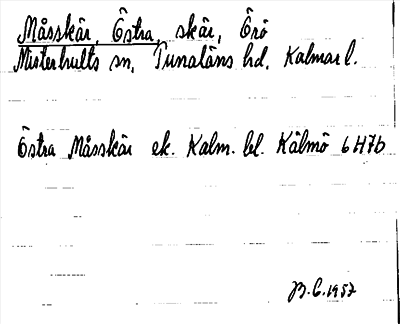 Måsskär, Östra, skär, Örö
Misterhults sn, Tunaläns hd, Kalmar l.
Östra Måsskär ek. Kalm. bl. Kälmö 6H7b
B.C. 1957